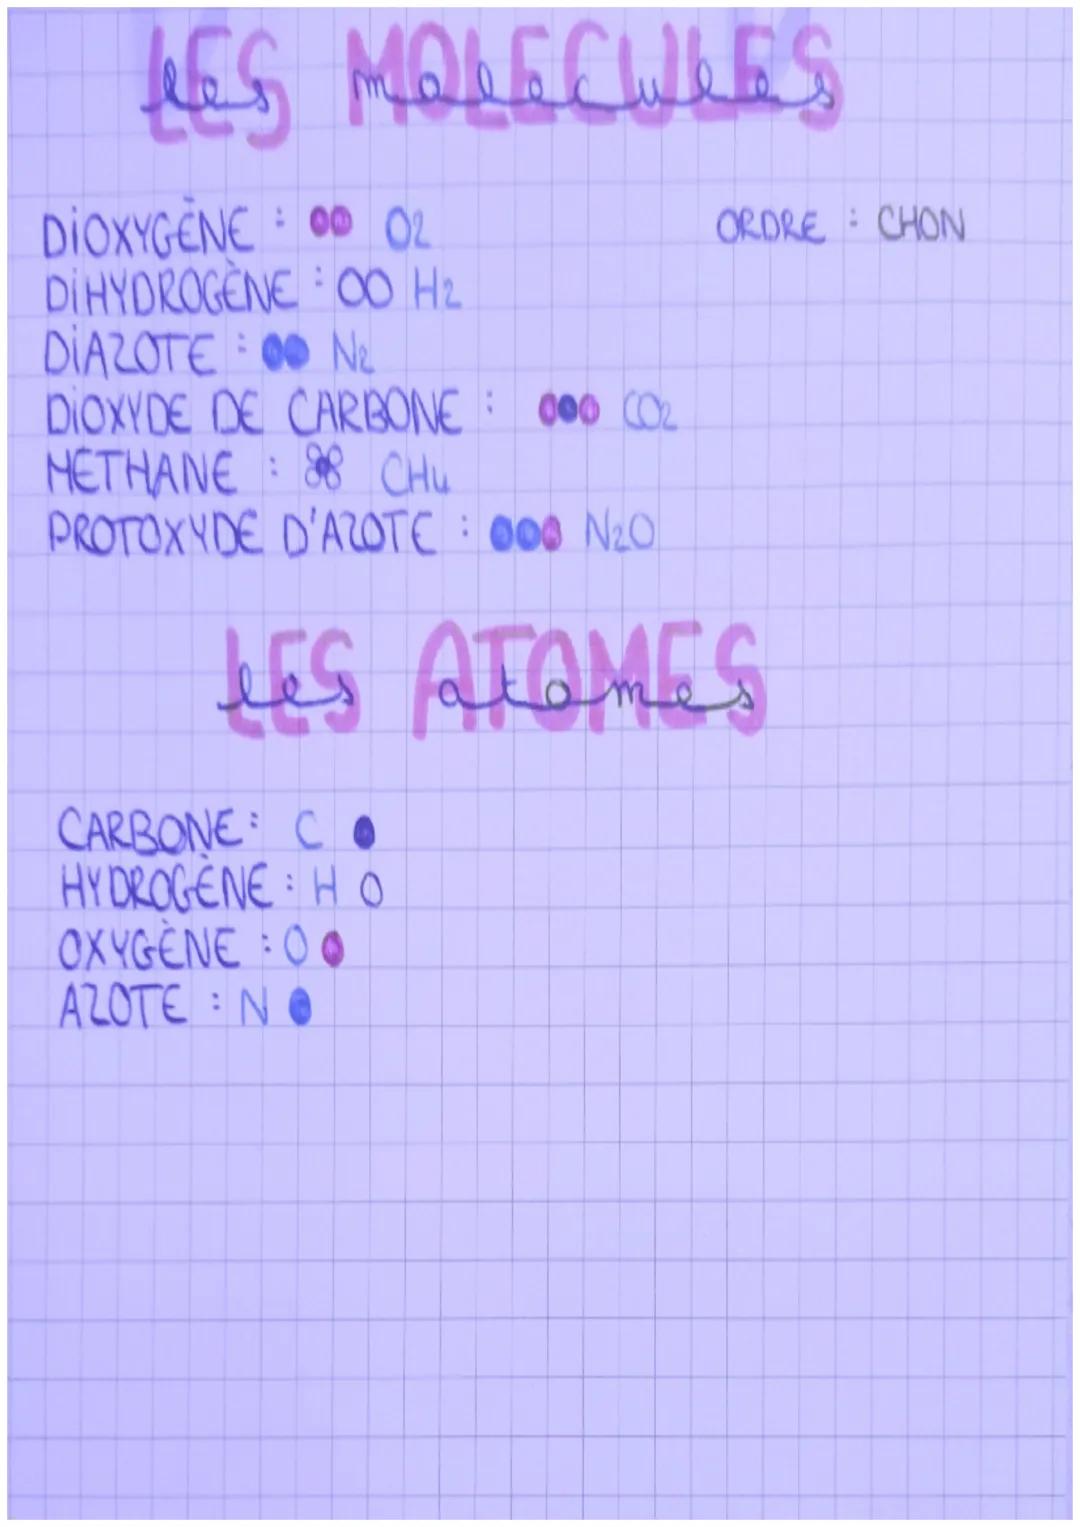 LES MOLECULES
les molecules
DIOXYGÈNE : O2
ORDRE : CHON
DIHYDROGÈNE : H2
DIAZOTE : N2
DIOXYDE DE CARBONE : CO2
MÉTHANE : CH4
PROTOXYDE D'AZOTE : N2O
LES ATOMES
les atomes
CARBONE : C
HYDROGÈNE : H
OXYGÈNE : O
AZOTE : N